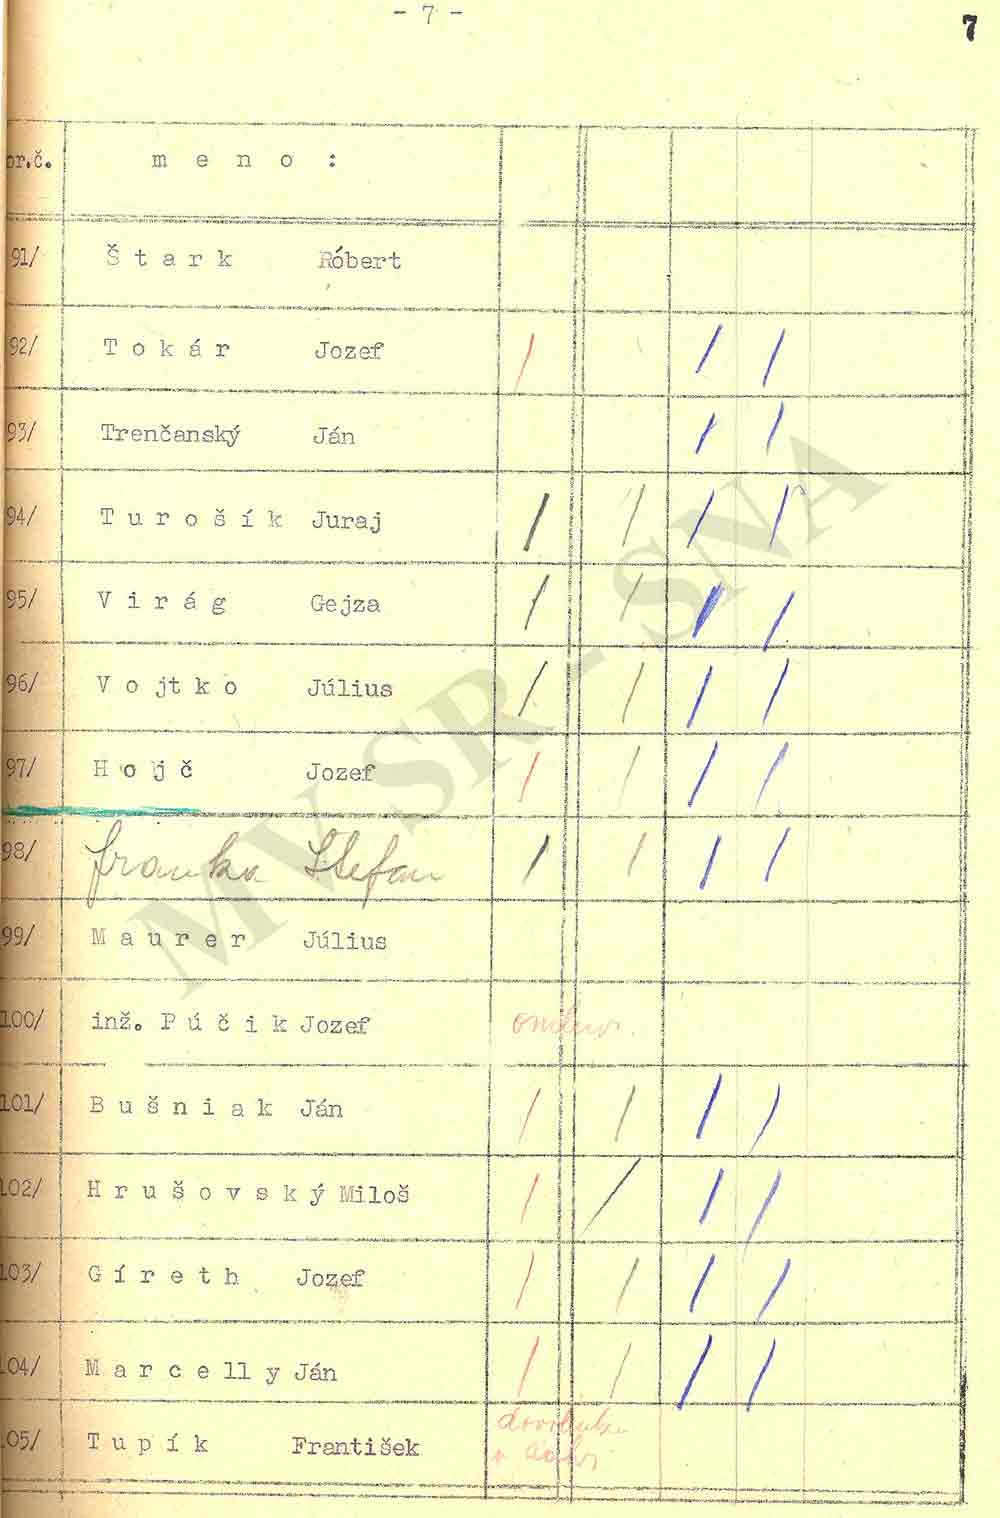 - 7 -
7
or.č. m e n o :
91/ Š t a r k Róbert
92/ T o k á r Jozef
93/ Trenčanský Ján
94/ T u r o š í k Juraj
95/ V i r á g Gejza
96/ V o j t k o Július
97/ H o j č Jozef
98/ Franka Štefan
99/ M a u r e r Július
100/ inž. P ú č i k Jozef
101/ B u š n i a k Ján
102/ H r u š o v s k ý Miloš
103/ G í r e t h Jozef
104/ M a r c e l l y Ján
105/ T u p í k František
MVSR - SNA